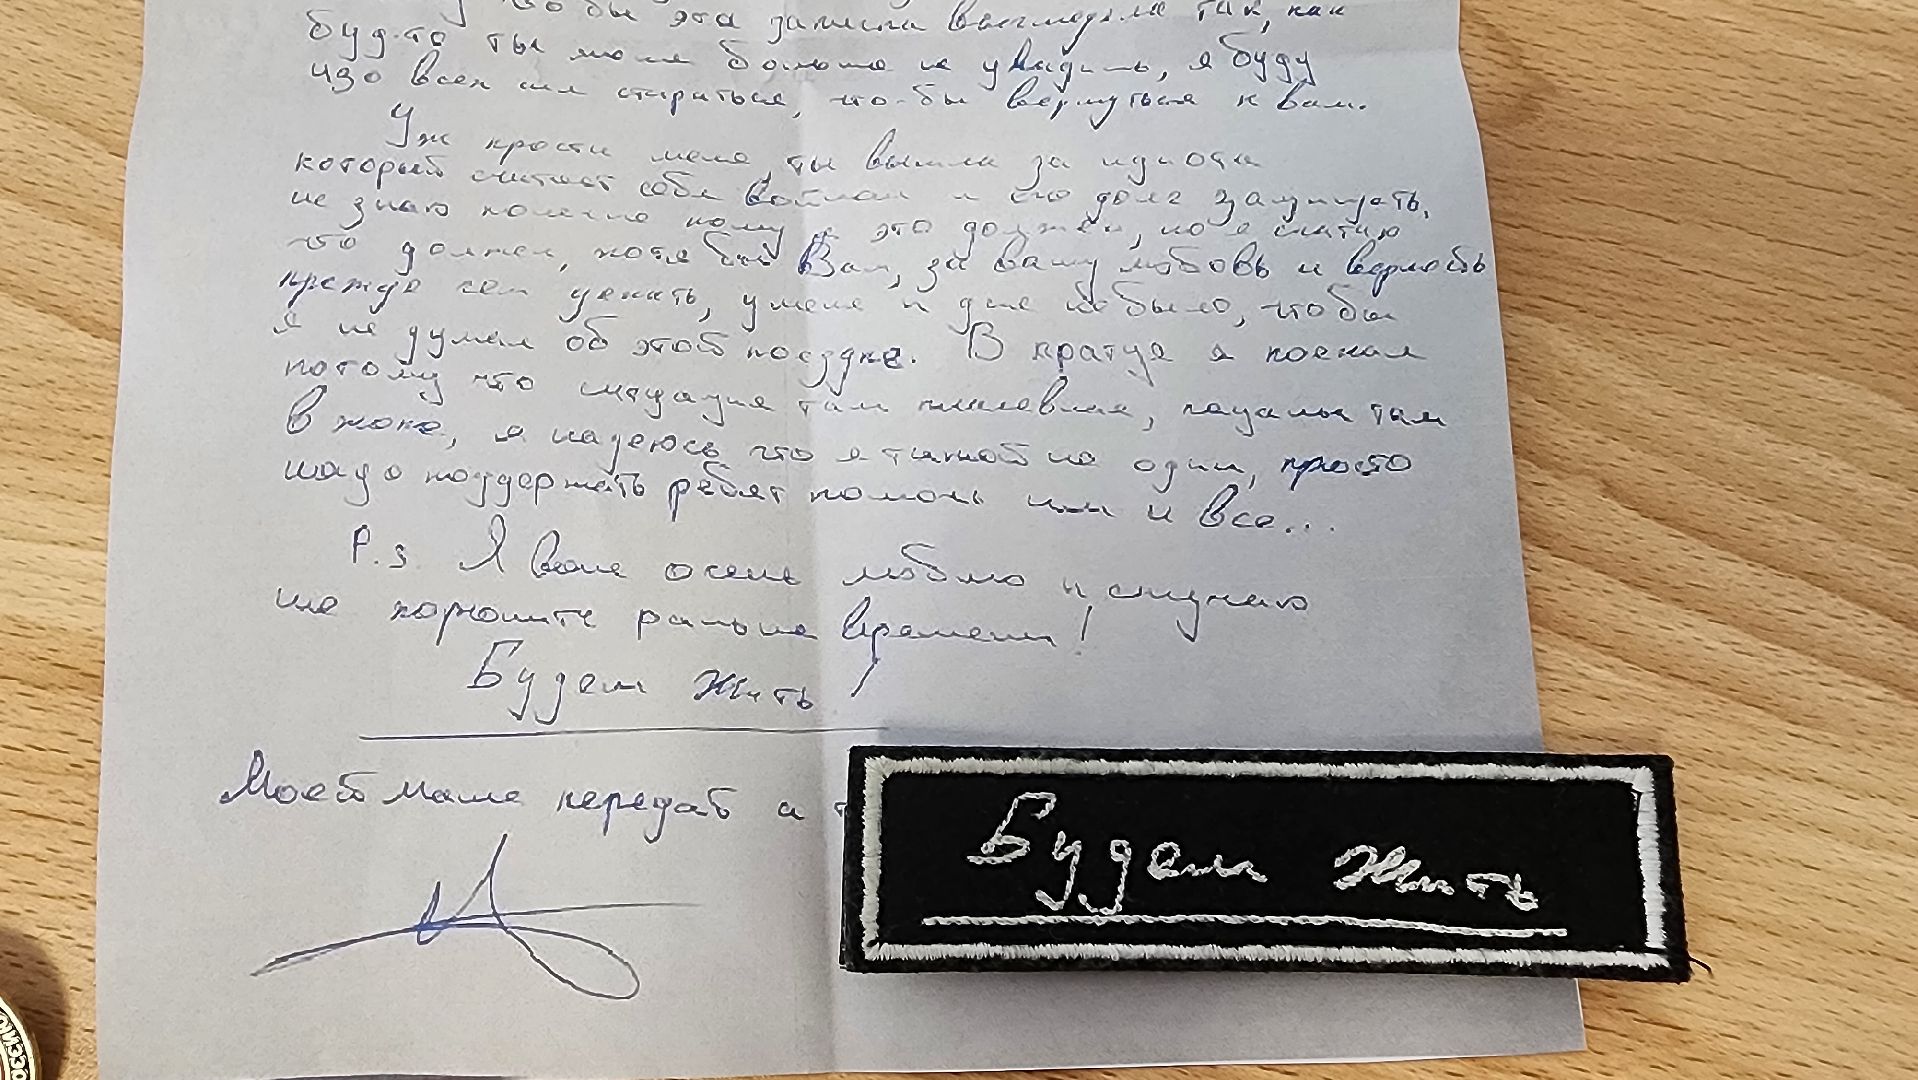 что бы эта записка выглядела так, как
будто ты меня больше не увидишь, я буду
изо всех сил стараться, что-бы вернуться к вам.
Уж прости меня, ты вышла за идиота
который считает себя войном и его долг защищать,
не знаю конечно кому я это должен, но я считаю
что должен, хотя бы Вам, за вашу любовь и верность
прежде чем уехать, у меня и дня не было, что бы
я не думал об этой поездке. В кратце я поехал
потому что ситуация там хреновая, пацаны там
в жопе, я надеюсь что я такой не один, просто
надо поддержать ребят помочь им и все...
P.S. Я вас очень люблю и скучаю
не хороните раньше времени!
Будем Жить!
Моей Маше передай а
Будем Жить